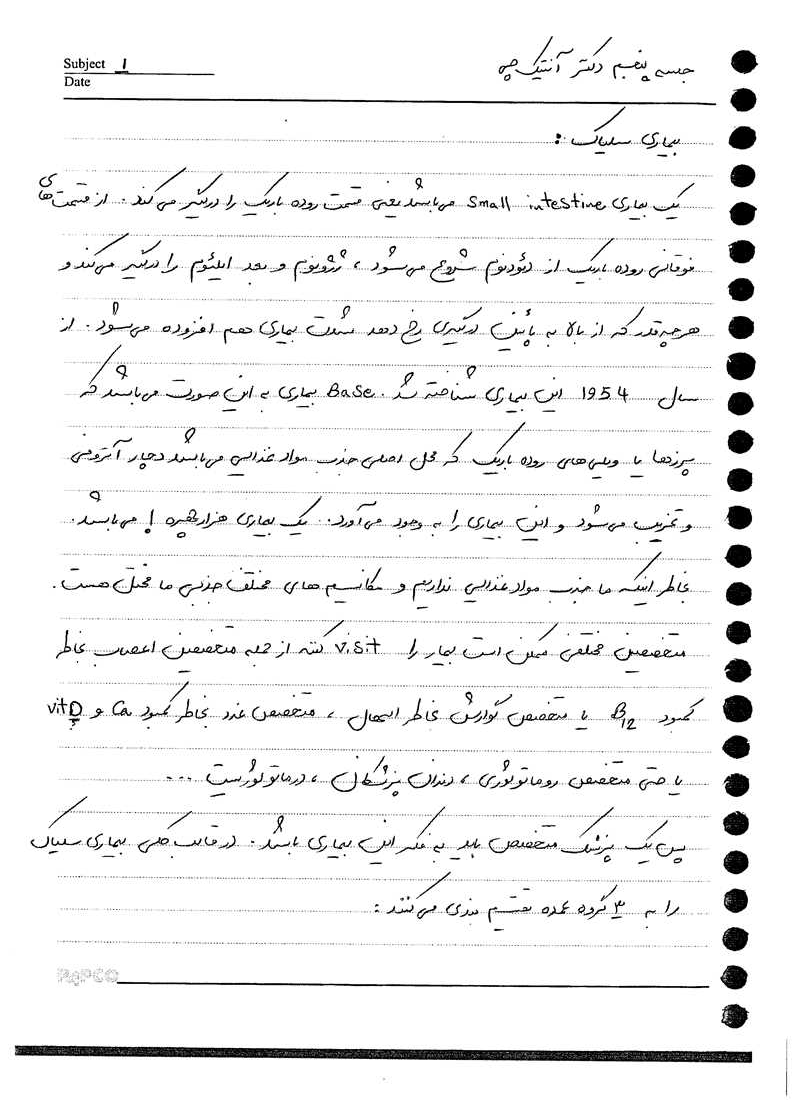 Subject 1
Date
جلسه پنجم دکتر آنتیک چی
بیماری سلیاک :
یک بیماری Small intestine می‌باشد یعنی قسمت روده باریک را درگیر می‌کند. از قسمت‌های
فوقانی روده باریک از دئودنوم شروع می‌شود ، ژژونوم و بعد ایلئوم را درگیر می‌کند و
هرچه قدر که از بالا به پائین درگیری رخ دهد شدت بیماری هم افزوده می‌شود. از
سال 1954 این بیماری شناخته شد. Base بیماری به این صورت می‌باشد که
پرزها یا ویلی‌های روده باریک که محل اصلی جذب مواد غذایی می‌باشد دچار آتروفی
و تخریب می‌شود و این بیماری را به وجود می‌آورد. یک بیماری هزار چهره ! می‌باشد.
بخاطر اینکه ما جذب مواد غذایی نداریم و مکانیسم های مختلف جذبی ما مختل هست.
متخصصین مختلفی ممکن است بیمار را visit کنند از جمله متخصصین اعصاب بخاطر
کمبود B12 یا متخصص گوارش بخاطر اسهال ، متخصص غدد بخاطر کمبود Ca و vit D
یا حتی متخصص روماتولوژی ، دندان پزشکان ، درماتولوژیست ...
پس یک پزشک متخصص باید به فکر این بیماری باشد. در قالب کلی بیماری سلیاک
را به ۳ گروه عمده تقسیم بندی می‌کنند :
PAPCO